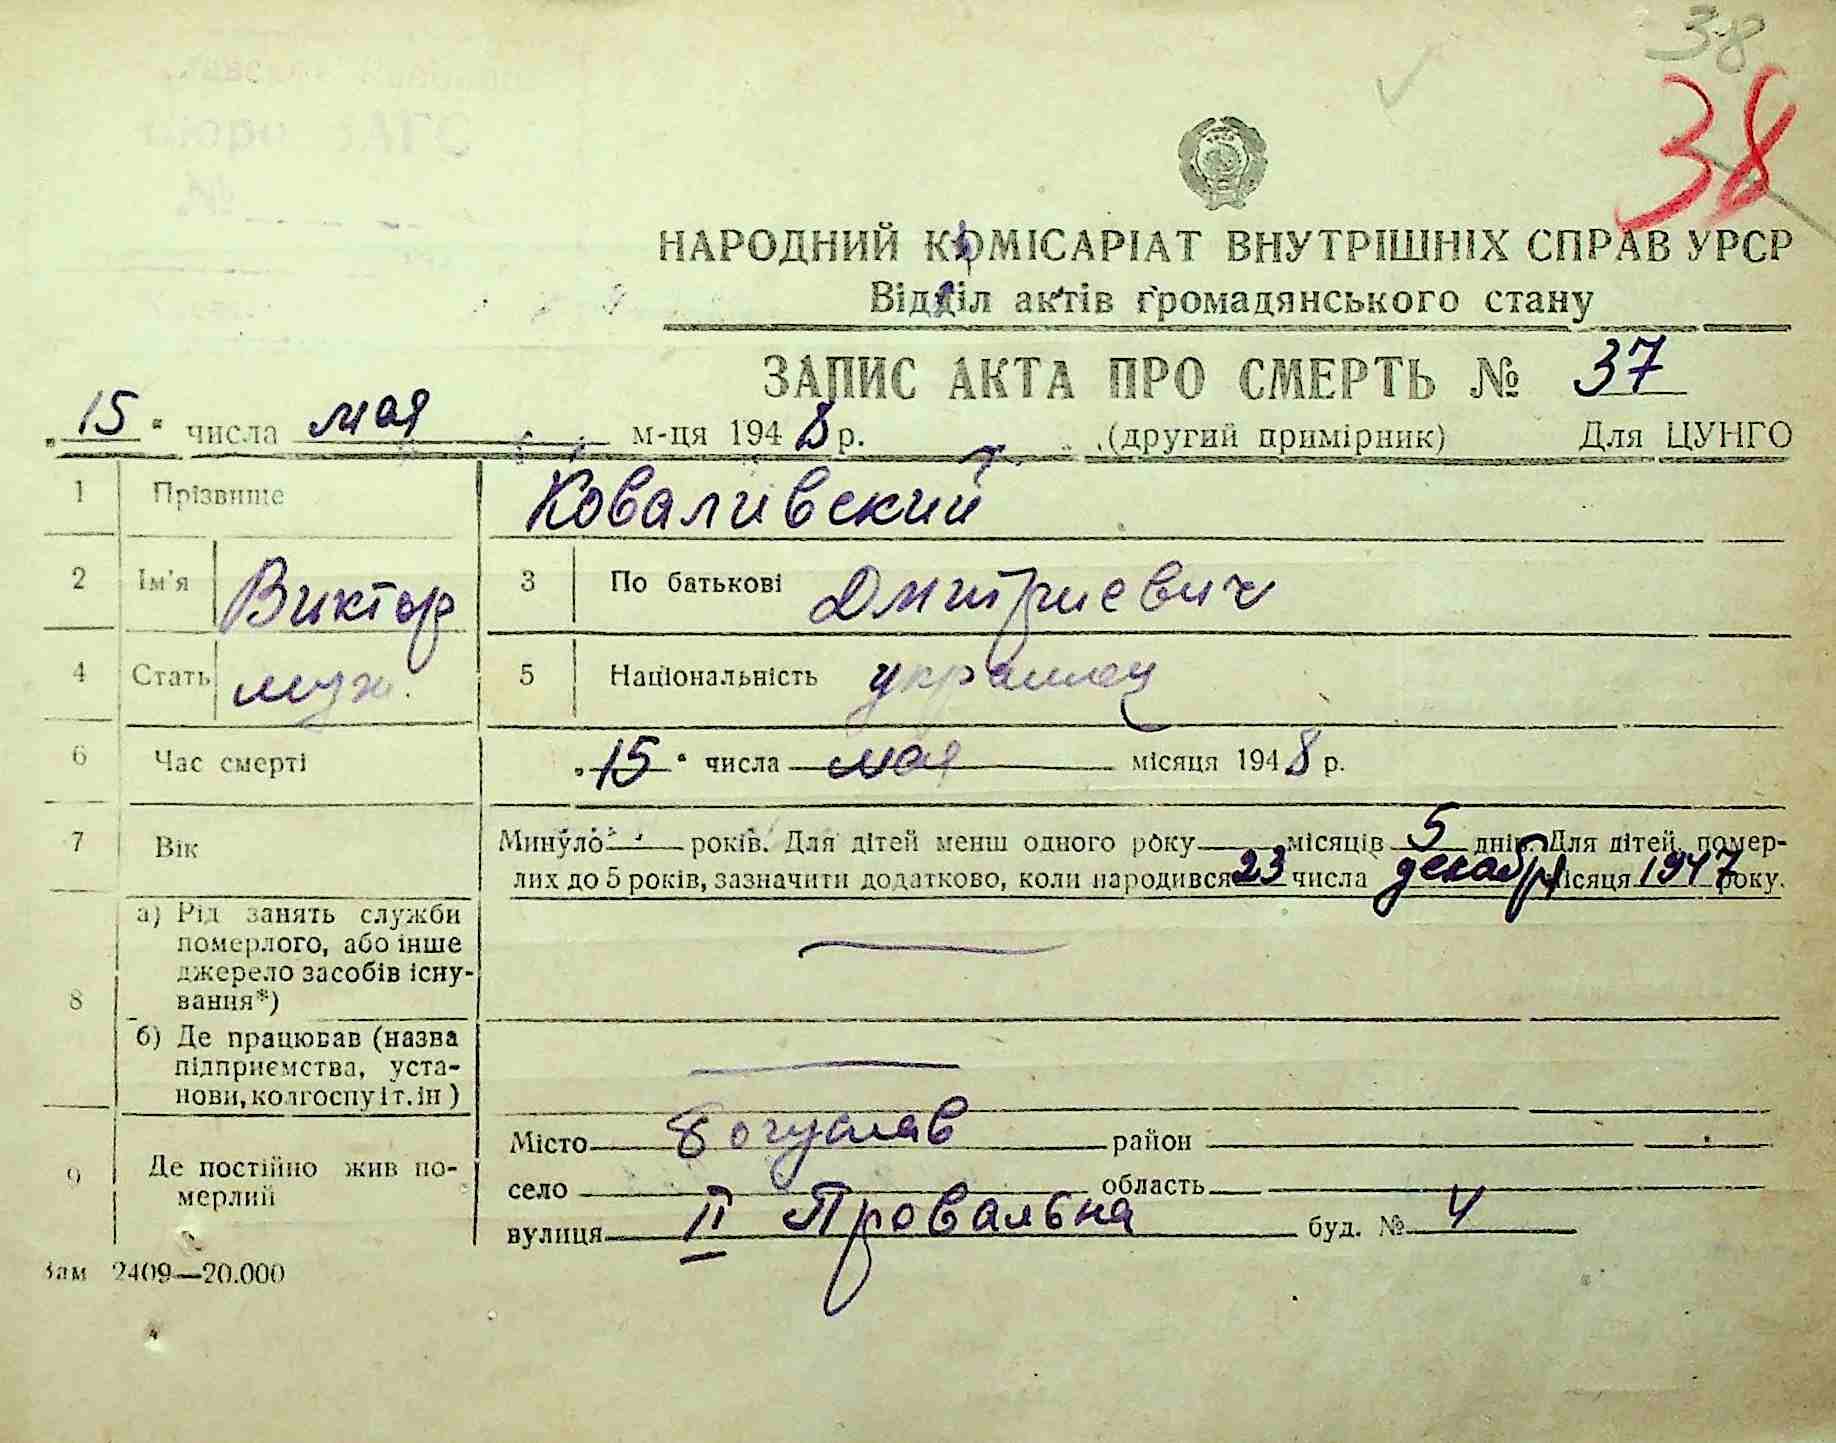 38
38
НАРОДНИЙ КОМІСАРІАТ ВНУТРІШНІХ СПРАВ УРСР
Відділ актів громадянського стану
ЗАПИС АКТА ПРО СМЕРТЬ № 37
„15“ числа мая м-ця 1948 р. (другий примірник) Для ЦУНГО
1 Прізвище Коваливский
2 Ім'я Виктор 3 По батькові Дмитриевич
4 Стать муж. 5 Національність украинец
6 Час смерті „15“ числа мая місяця 1948 р.
7 Вік Минуло — років. Для дітей менш одного року місяців 5 днів. Для дітей, помер-
лих до 5 років, зазначити додатково, коли народився 23 числа декабр місяця 1947 року.
8 а) Рід занять служби
померлого, або інше
джерело засобів існу-
вання*)
б) Де працював (назва
підприємства, уста-
нови, колгоспу і т. ін)
9 Де постійно жив по-
мерлий
Місто Богуслав район
село область
вулиця II Провальна буд. № 4
Зам 2409—20.000